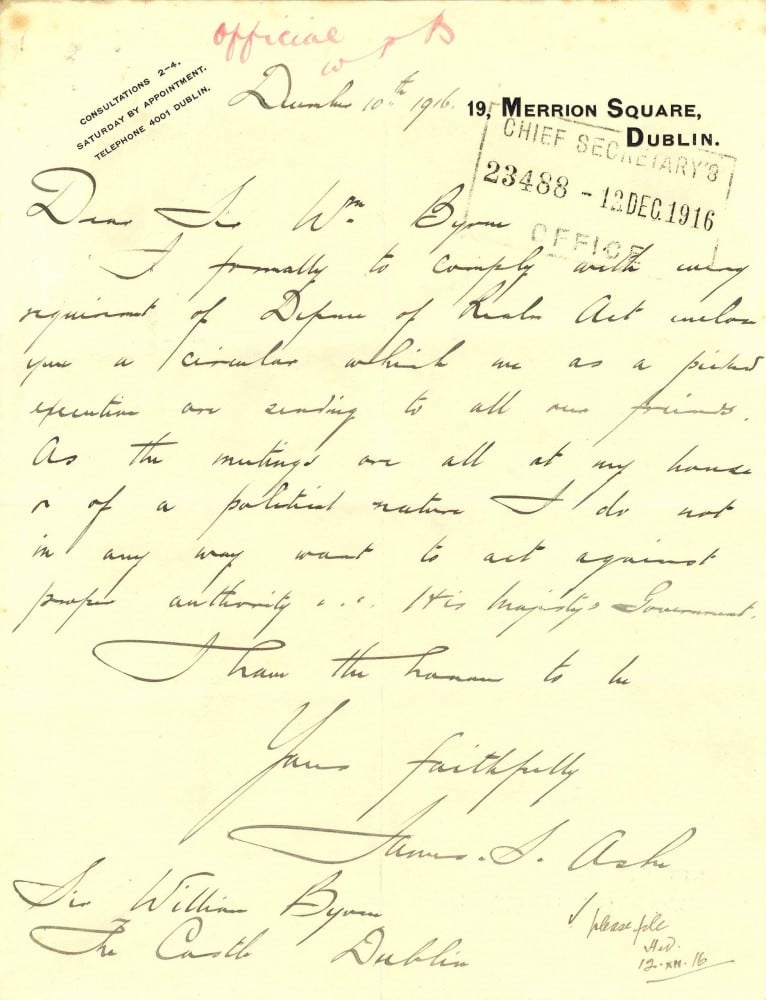 Official
CONSULTATIONS 2-4.
SATURDAY BY APPOINTMENT.
TELEPHONE 4001 DUBLIN.
December 10th 1916.
19, MERRION SQUARE,
DUBLIN.
CHIEF SECRETARY'S
23488 - 12 DEC. 1916
OFFICE
Dear Sir Wm. Byrne
I formally to comply with every
requirement of Defence of Realm Act enclose
you a circular which we as a picked
executive are sending to all our friends.
As the meetings are all at my house
& of a political nature I do not
in any way want to act against
proper authority i.e. His Majesty's Government.
I have the honour to be
Yours faithfully
James. S. Ashe
Sir William Byrne
The Castle Dublin
✓ please file
12.XII.16